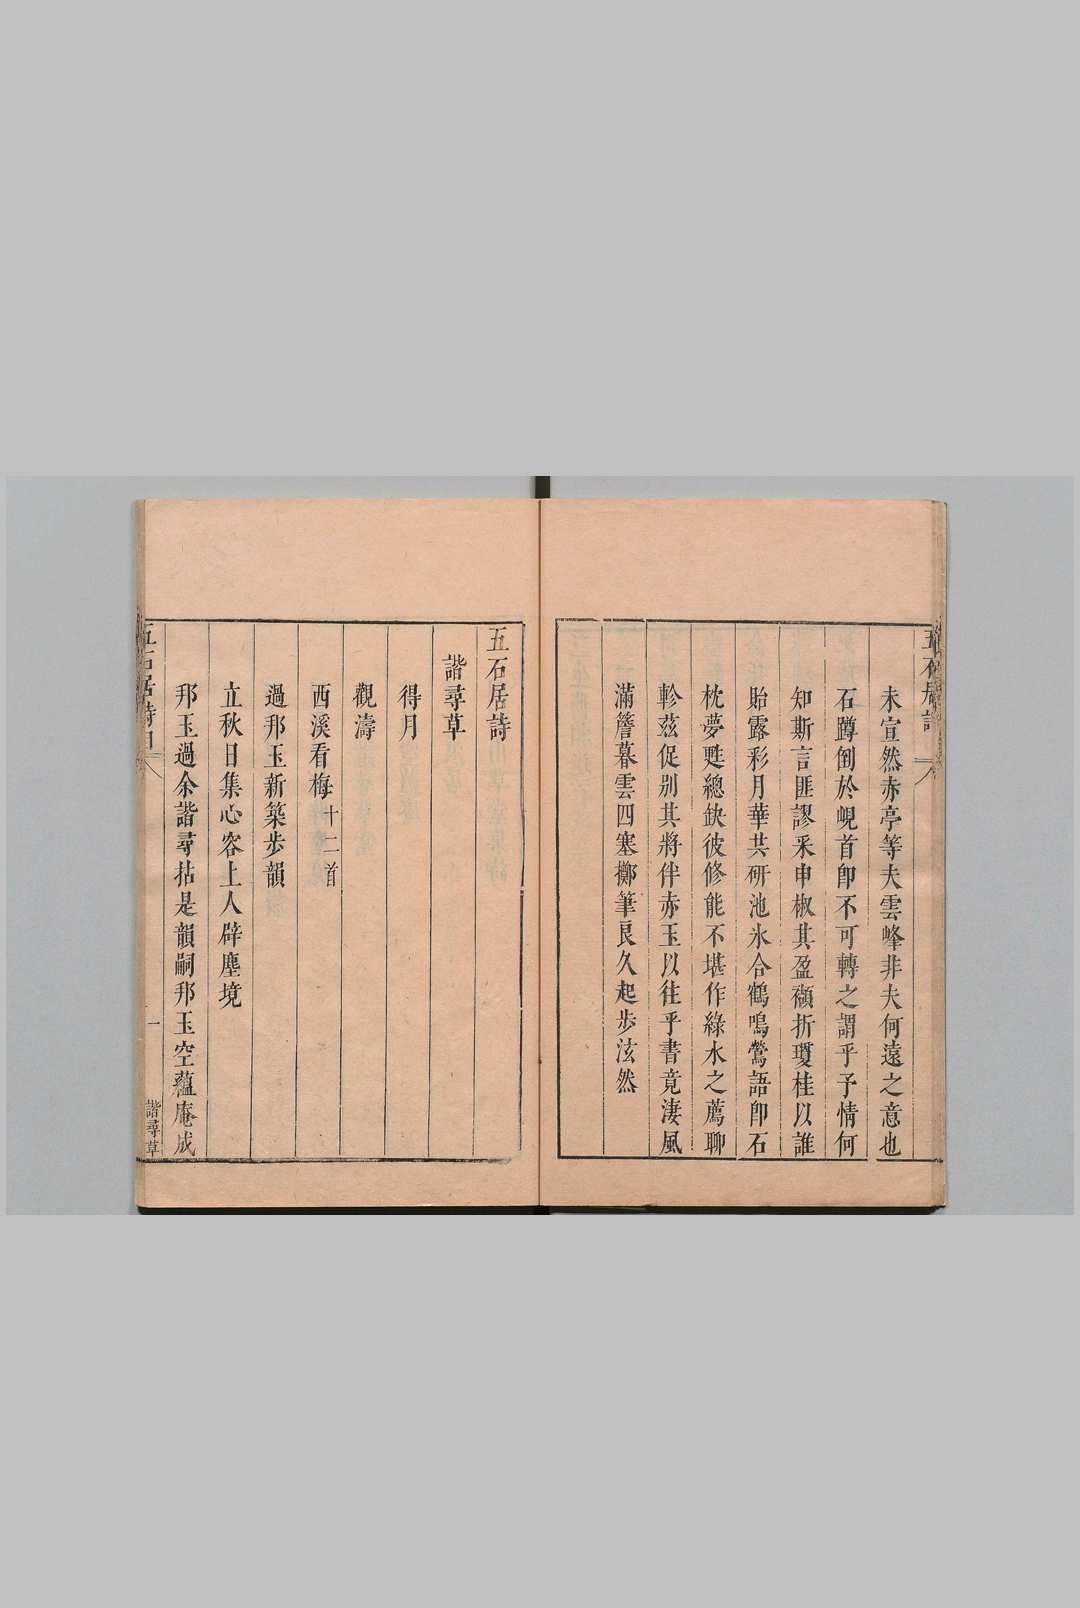 未宣然赤亭等夫雲峰非夫何遠之意也
石蹲倒於峴首卽不可轉之謂乎予情何
知斯言匪謬釆申椒其盈襭折瓊桂以誰
貽露彩月華共硏池氷合鶴鳴鶯語卽石
枕夢甦總鈌彼修能不堪作綠水之薦聊
軫茲促别其將伴赤玉以往乎書竟淒風
滿簷暮雲四塞擲筆良久起步泫然
五石居詩
諧尋草
得月
觀濤
西溪看梅十二首
過邦玉新築步韻
立秋日集心容上人辟塵境
邦玉過余諧尋拈是韻嗣邦玉空蘊庵成
五石居詩目
一
諧尋草